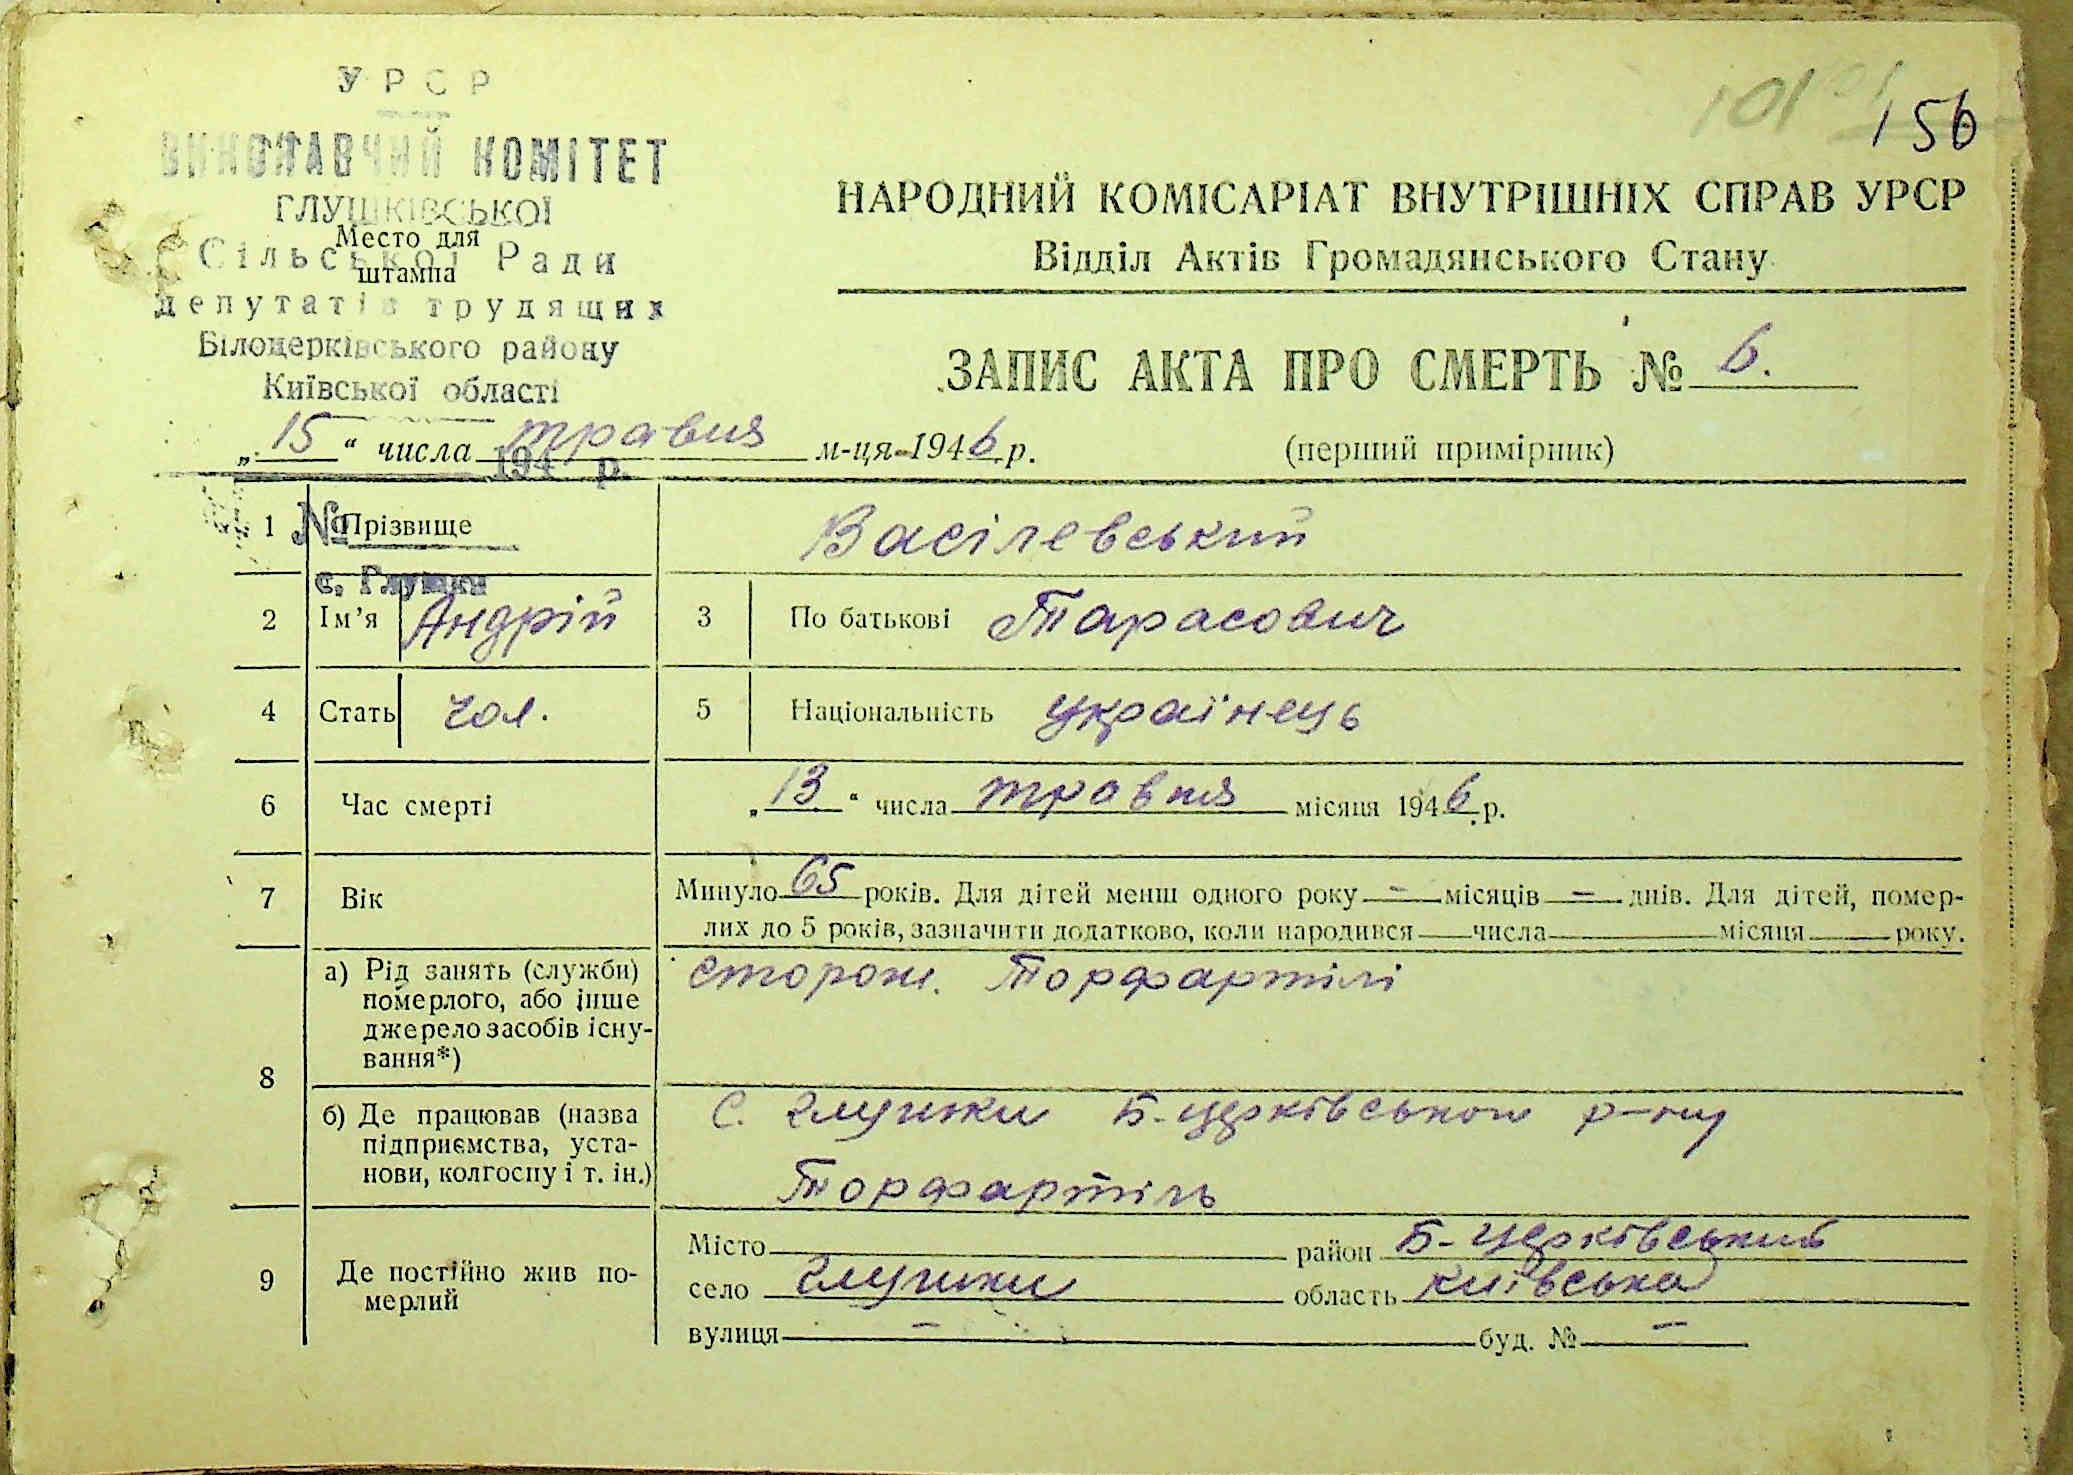 УРСР
ВИКОНАВЧИЙ КОМІТЕТ
ГЛУШКІВСЬКОЇ
Место для
Сільської Ради
штампа
депутатів трудящих
Білоцерківського району
Київської області
101
156
НАРОДНИЙ КОМІСАРІАТ ВНУТРІШНІХ СПРАВ УРСР
Відділ Актів Громадянського Стану
ЗАПИС АКТА ПРО СМЕРТЬ № 6.
„15“ числа травня м-ця 1946 р.
(перший примірник)
194 р.
1 Прізвище Васілевський
№
с. Глушки
2 Ім’я Андрій 3 По батькові Тарасович
4 Стать чол. 5 Національність українець
6 Час смерті „13“ числа травня місяця 1946 р.
7 Вік Минуло 65 років. Для дітей менш одного року – місяців – днів. Для дітей, помер-
лих до 5 років, зазначити додатково, коли народився числа місяця року.
8 а) Рід занять (служби) сторож. Торфартілі
померлого, або інше
джерело засобів існу-
вання*)
б) Де працював (назва с. Глушки Б-церківського р-ну
підприємства, уста-
нови, колгоспу і т. ін.) Торфартіль
9 Де постійно жив по-
мерлий
Місто район Б-Церківський
село Глушки область Київська
вулиця – буд. № –